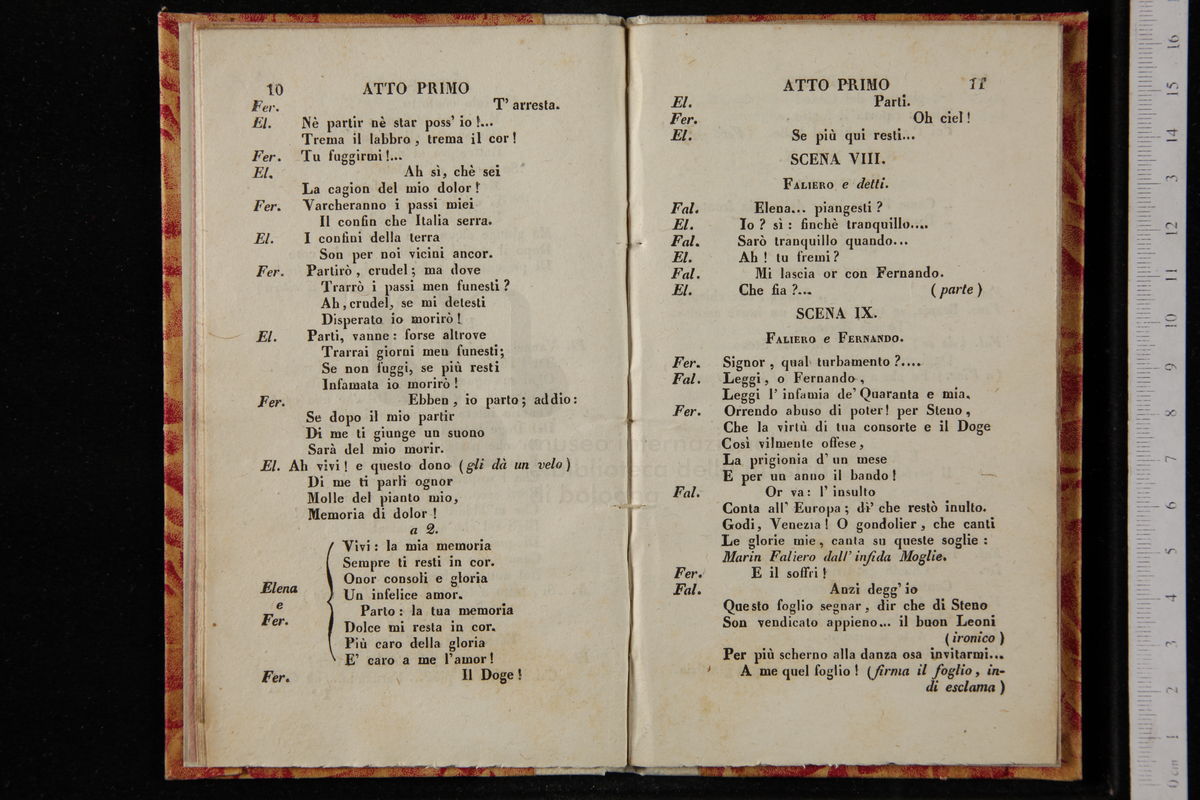 10 ATTO PRIMO
Fer. T' arresta.
El. Nè partir nè star poss' io !...
Trema il labbro , trema il cor !
Fer. Tu fuggirmi !...
El. Ah sì, chè sei
La cagion del mio dolor !
Fer. Varcheranno i passi miei
Il confin che Italia serra.
El. I confini della terra
Son per noi vicini ancor.
Fer. Partirò , crudel ; ma dove
Trarrò i passi men funesti ?
Ah , crudel, se mi detesti
Disperato io morirò !
El. Parti, vanne : forse altrove
Trarrai giorni men funesti ;
Se non fuggi, se più resti
Infamata io morirò !
Fer. Ebben , io parto ; addio :
Se dopo il mio partir
Di me ti giunge un suono
Sarà del mio morir.
El. Ah vivi ! e questo dono (gli dà un velo)
Di me ti parli ognor
Molle del pianto mio,
Memoria di dolor !
a 2.
Vivi : la mia memoria
Sempre ti resti in cor.
Onor consoli e gloria
Elena Un infelice amor.
e Parto : la tua memoria
Fer. Dolce mi resta in cor.
Più caro della gloria
E' caro a me l'amor !
Fer. Il Doge !
ATTO PRIMO 11
El. Parti.
Fer. Oh ciel !
El. Se più qui resti...
SCENA VIII.
FALIERO e detti.
Fal. Elena... piangesti ?
El. Io ? sì : finchè tranquillo....
Fal. Sarò tranquillo quando...
El. Ah ! tu fremi ?
Fal. Mi lascia or con Fernando.
El. Che fia ?... (parte)
SCENA IX.
FALIERO e FERNANDO.
Fer. Signor , qual turbamento ?....
Fal. Leggi , o Fernando ,
Leggi l' infamia de' Quaranta e mia.
Fer. Orrendo abuso di poter ! per Steno ,
Che la virtù di tua consorte e il Doge
Così vilmente offese ,
La prigionia d' un mese
E per un anno il bando !
Fal. Or va : l' insulto
Conta all' Europa ; di' che restò inulto.
Godi, Venezia ! O gondolier , che canti
Le glorie mie , canta su queste soglie :
Marin Faliero dall' infida Moglie.
Fer. E il soffri !
Fal. Anzi degg' io
Questo foglio segnar , dir che di Steno
Son vendicato appieno... il buon Leoni
(ironico)
Per più scherno alla danza osa invitarmi...
A me quel foglio ! (firma il foglio, in-
di esclama)
museo interna
biblioteca del
di bologna
0 cm 1 2 3 4 5 6 7 8 9 10 11 12 13 14 15 16